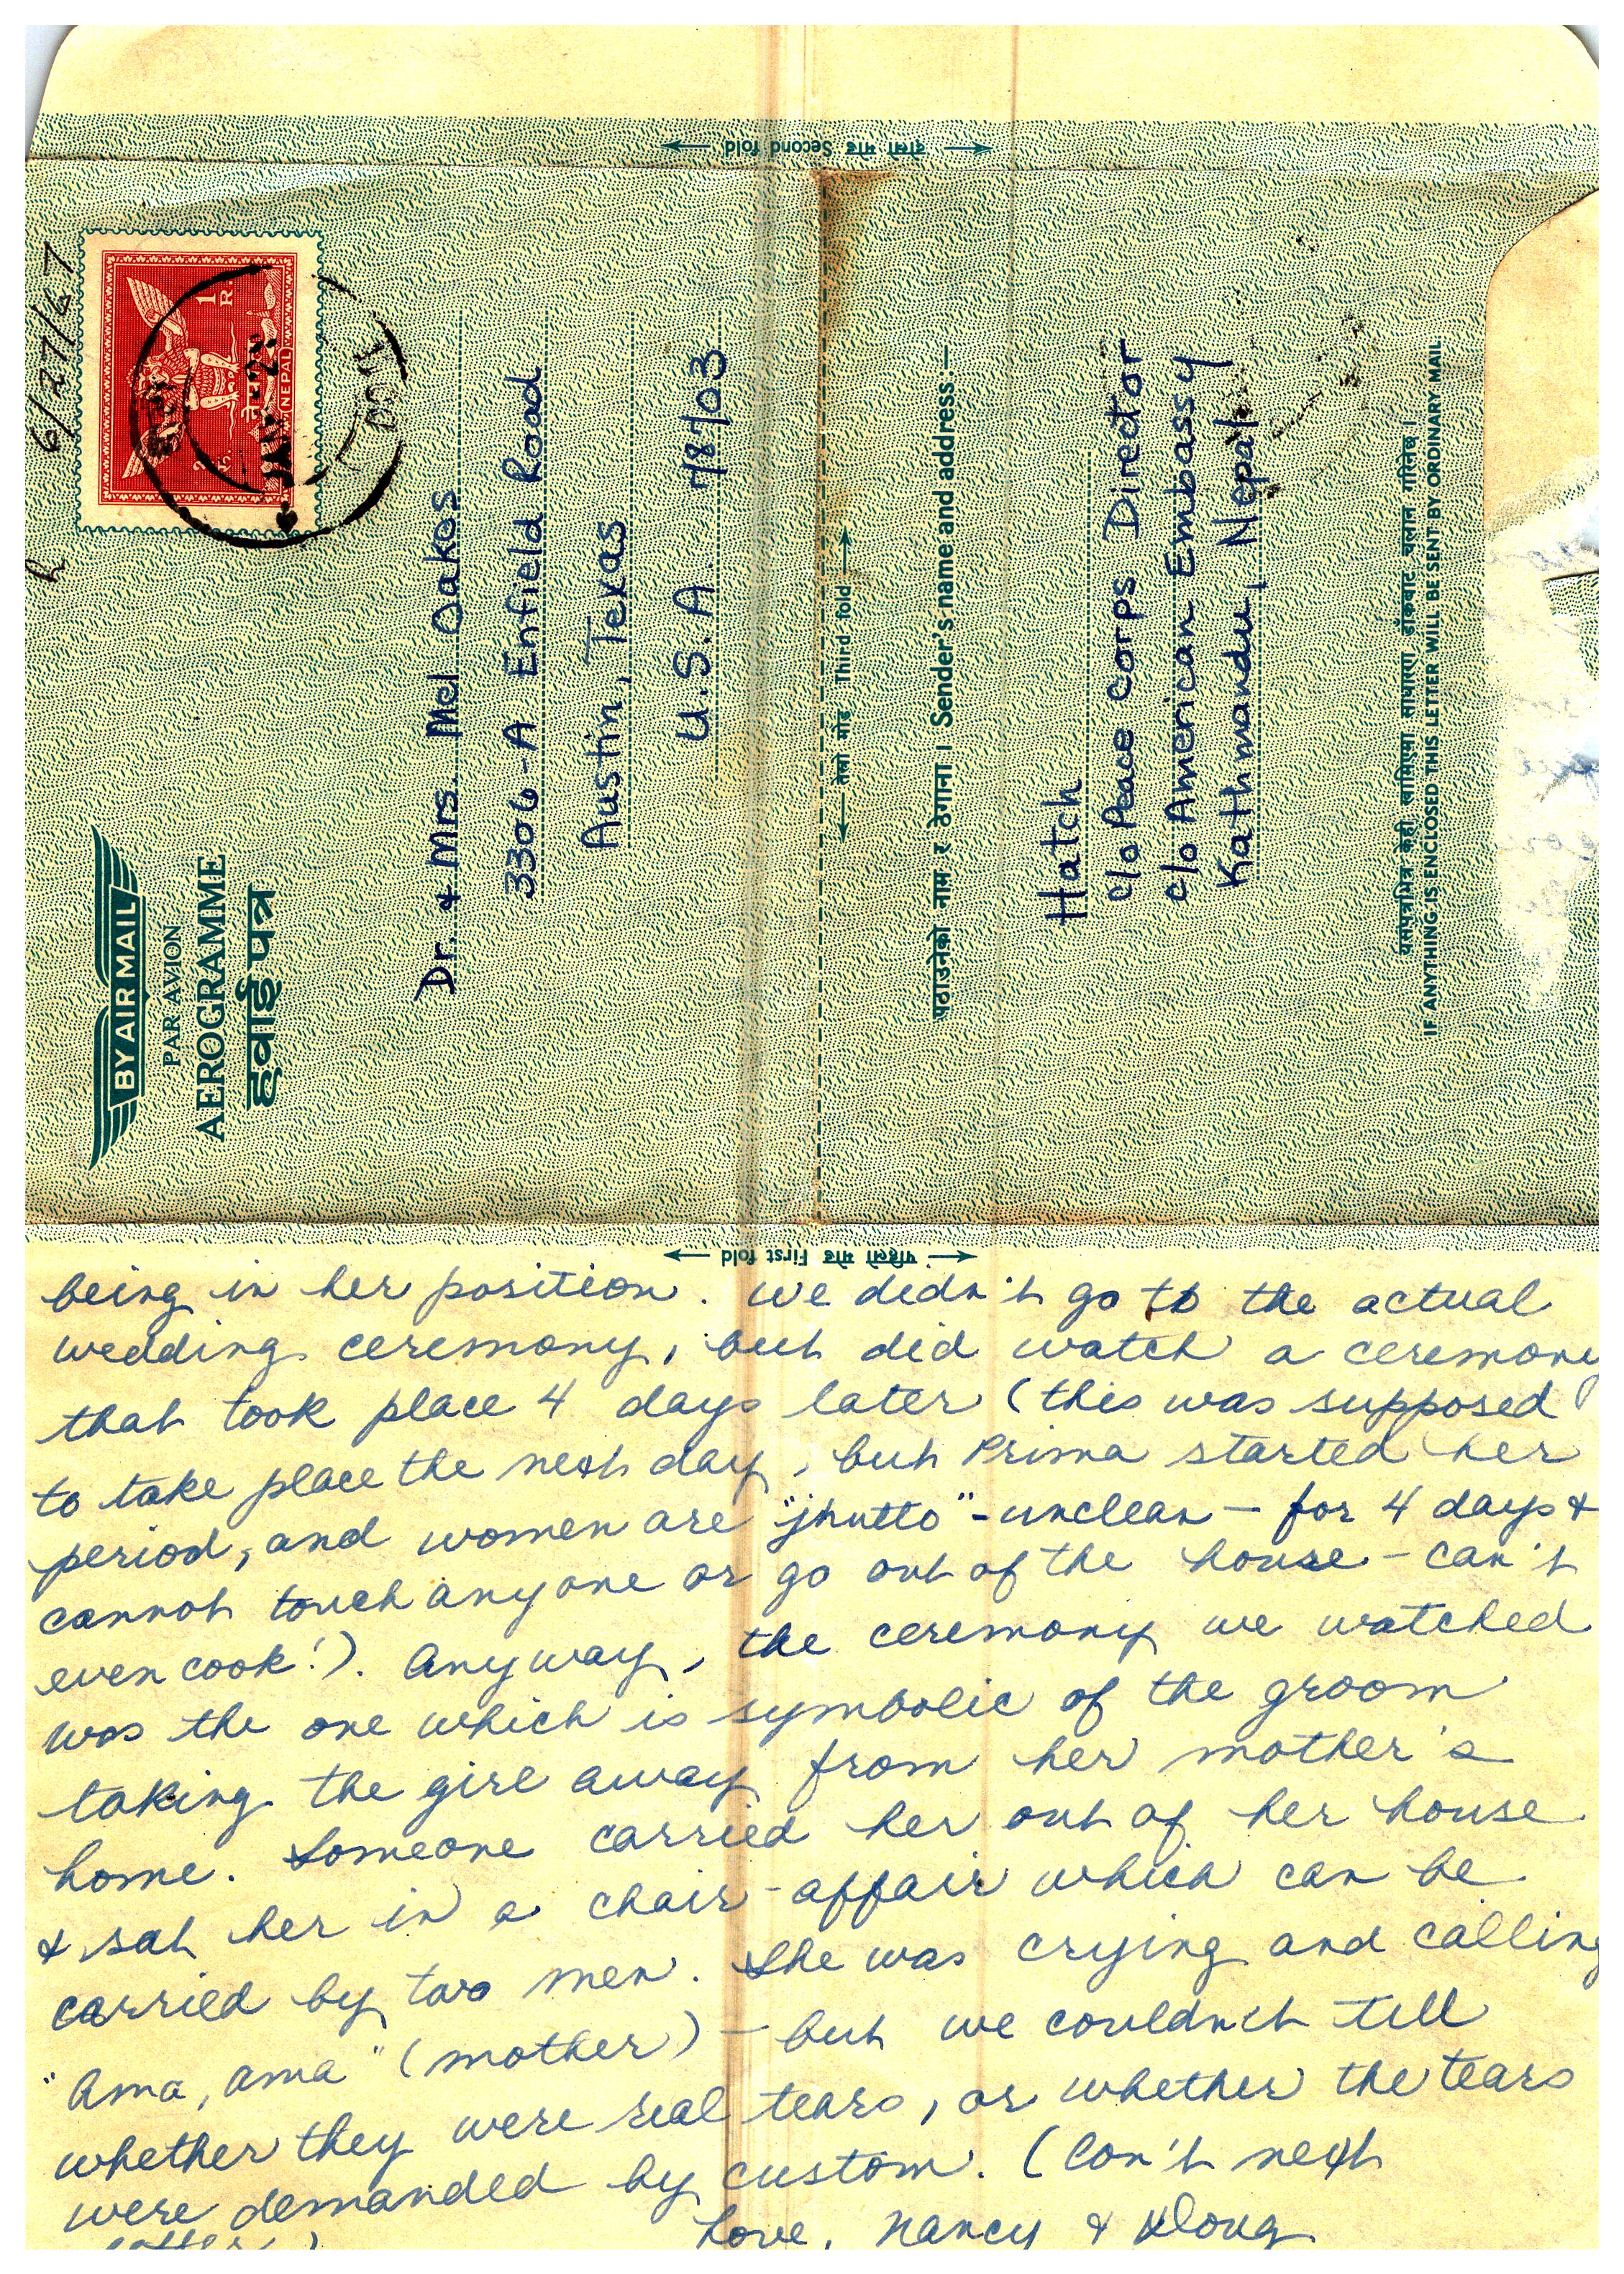 दोस्रो मोड Second fold
6/27/67
R
1 R.
नेपाल
NEPAL
BY AIR MAIL
PAR AVION
AEROGRAMME
हवाई पत्र
Dr. & Mrs. Mel Oakes
3306-A Enfield Road
Austin, Texas
U.S.A. 78703
तेस्रो मोड Third fold
पठाउनेको नाम र ठेगाना । Sender's name and address:—
Hatch
c/o Peace Corps Director
c/o American Embassy
Kathmandu, Nepal
यसपत्रभित्र केही खामिएमा साधारण डाँकबाट चलान गरिनेछ ।
IF ANYTHING IS ENCLOSED THIS LETTER WILL BE SENT BY ORDINARY MAIL
पहिलो मोड First fold
being in her position. We didn't go to the actual
wedding ceremony, but did watch a ceremony
that took place 4 days later (this was supposed
to take place the next day, but Prima started her
period, and women are "jhutto" - unclean — for 4 days &
cannot touch anyone or go out of the house - can't
even cook!). Anyway, the ceremony we watched
was the one which is symbolic of the groom
taking the girl away from her mother's
home. Someone carried her out of her house
& sat her in a chair-affair which can be
carried by two men. She was crying and calling
"Ama, ama" (mother) — but we couldn't tell
whether they were real tears, or whether the tears
were demanded by custom. (Con't next
letter)
Love, Nancy & Doug